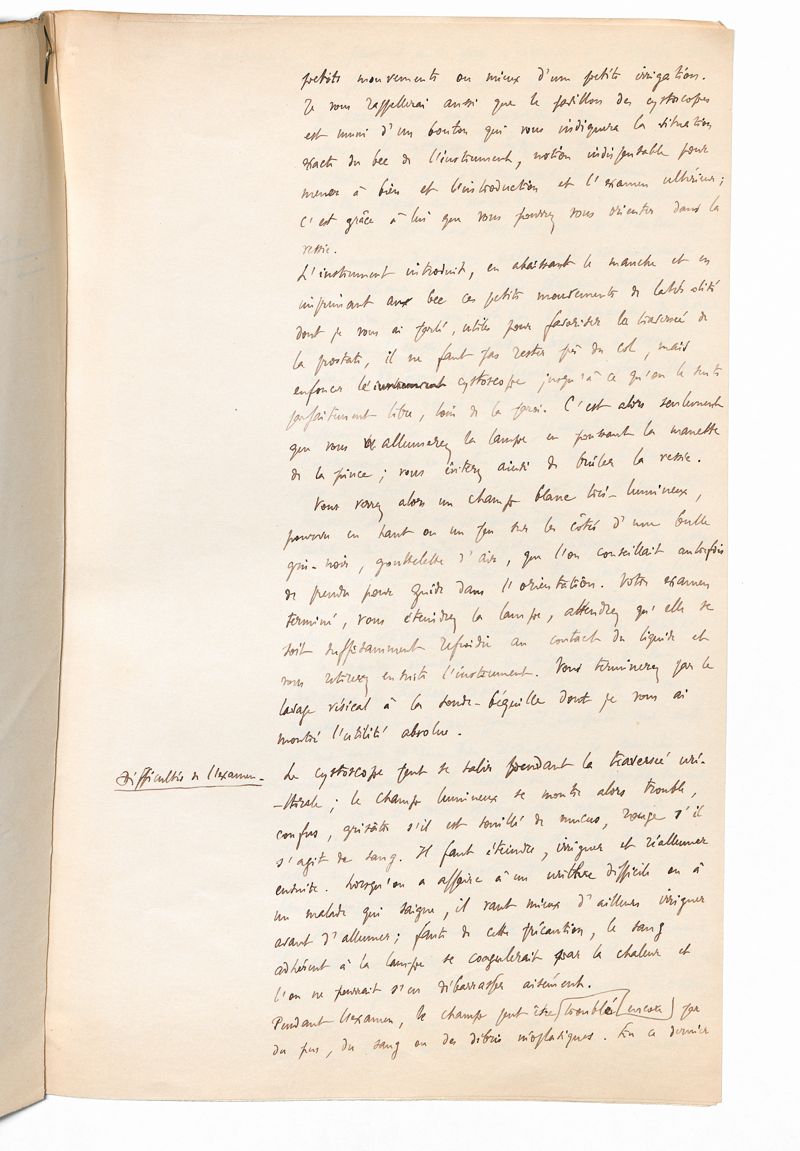 petits mouvements ou mieux d'une petite irrigation.
Je vous rappellerai aussi que le pavillon des cystoscopes
est muni d'un bouton qui vous indiquera la situation
exacte du bec de l'instrument, notion indispensable pour
mener à bien et l'introduction et l'examen ultérieur;
c'est grâce à lui que vous pourrez vous orienter dans la
vessie.
L'instrument introduit, en abaissant le manche et en
imprimant au bec ces petits mouvements de latéralité
dont je vous ai parlé, utiles pour favoriser la traversée de
la prostate, il ne faut pas rester près du col, mais
enfoncer le cystoscope jusqu'à ce qu'on le sente
parfaitement libre, loin de la paroi. C'est alors seulement
que vous allumerez la lampe en poussant la manette
de la pince; vous éviterez ainsi de brûler la vessie.
Vous verrez alors un champ blanc très-lumineux,
pourvu en haut ou un peu sur les côtés d'une bulle
gris-noir, gouttelette d'air, que l'on conseillait autrefois
de prendre pour guide dans l'orientation. Votre examen
terminé, vous éteindrez la lampe, attendrez qu'elle se
soit suffisamment refroidie au contact du liquide et
vous retirerez ensuite l'instrument. Vous terminerez par le
lavage vésical à la sonde-béquille dont je vous ai
montré l'utilité absolue.
Difficultés de l'examen. Le cystoscope peut se salir pendant la traversée uré-
-thrale; le champ lumineux se montre alors trouble,
confus, grisâtre s'il est souillé de mucus, rouge s'il
s'agit de sang. Il faut éteindre, irriguer et réallumer
ensuite. Lorsqu'on a affaire à un urèthre difficile ou à
un malade qui saigne, il vaut mieux d'ailleurs irriguer
avant d'allumer; faute de cette précaution, le sang
adhérent à la lampe se coagulerait par la chaleur et
l'on ne pourrait s'en débarrasser aisément.
Pendant l'examen, le champ peut être troublé encore par
du pus, du sang ou des débris néoplasiques. En ce dernier